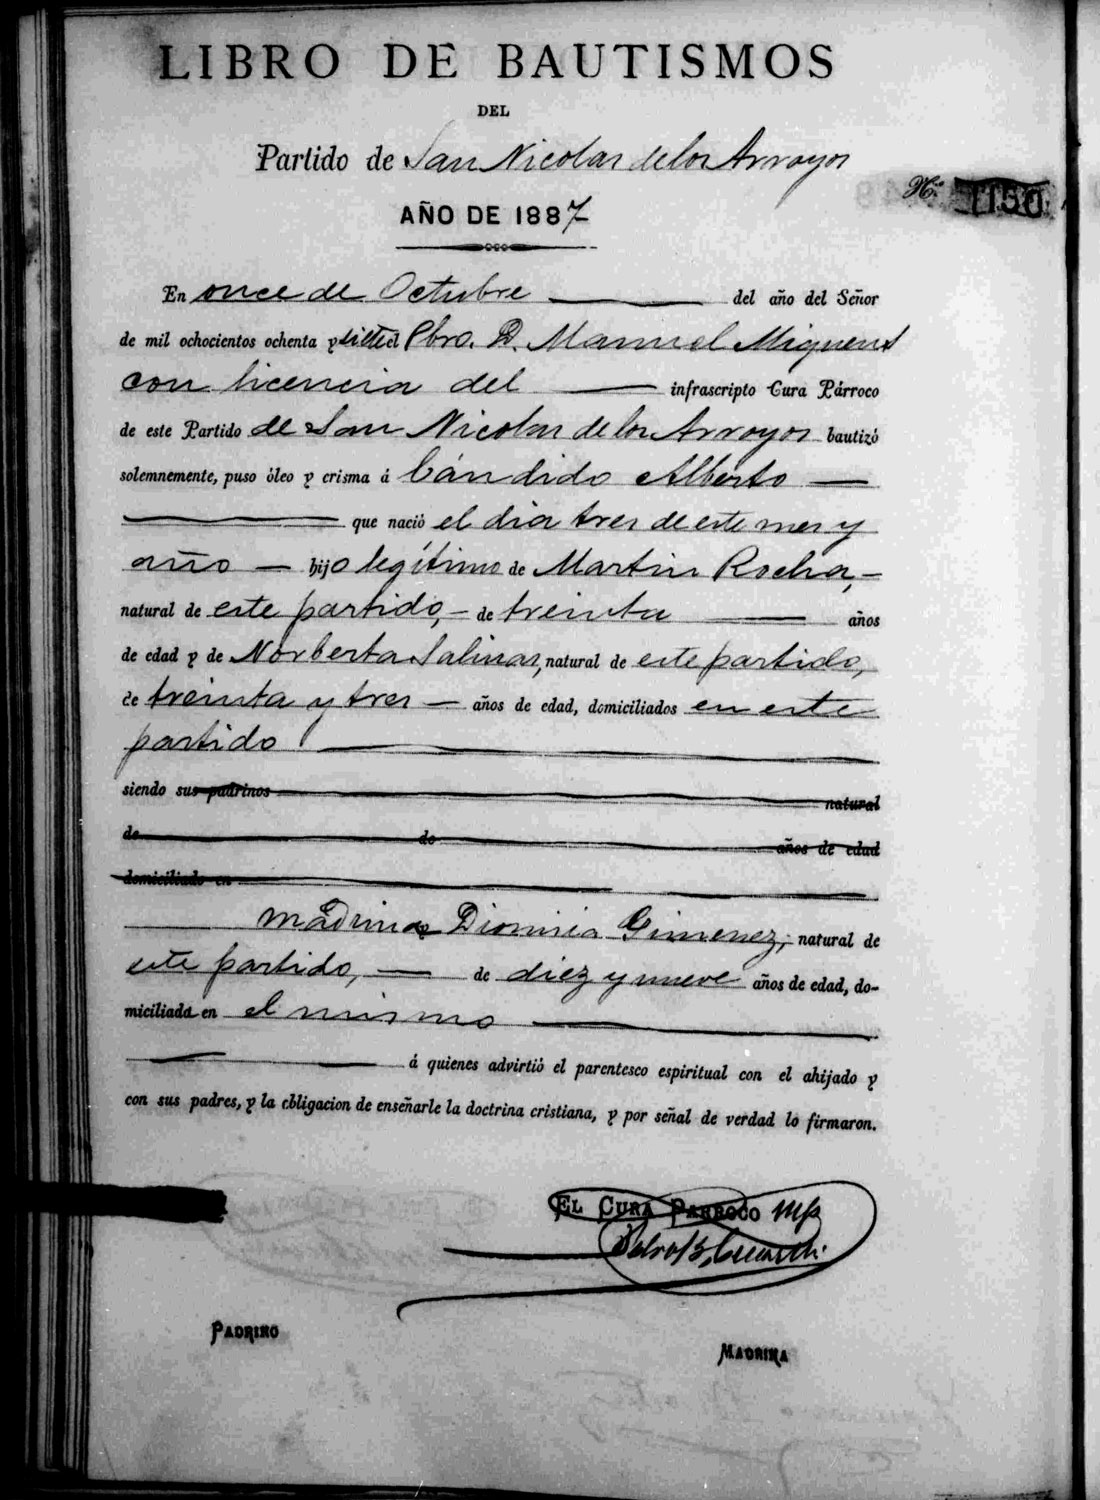 LIBRO DE BAUTISMOS
DEL
Partido de San Nicolas de los Arroyos
Nº 1150
AÑO DE 1887
En once de Octubre del año del Señor
de mil ochocientos ochenta y siete el Pbro. D. Manuel Miguens
con licencia del infrascripto Cura Párroco
de este Partido de San Nicolas de los Arroyos bautizó
solemnemente, puso óleo y crisma á Cándido Alberto
que nació el dia tres de este mes y
año hijo legítimo de Martin Rocha,
natural de este partido, de treinta años
de edad y de Norberta Salinas, natural de este partido,
de treinta y tres años de edad, domiciliados en este
partido
siendo sus padrinos natural
de de años de edad
domiciliado en
madrina Dionisia Gimenez, natural de
este partido, de diez y nueve años de edad, do-
miciliada en el mismo
á quienes advirtió el parentesco espiritual con el ahijado y
con sus padres, y la obligacion de enseñarle la doctrina cristiana, y por señal de verdad lo firmaron.
EL CURA PARROCO
Pedro B.
PADRINO
MADRINA